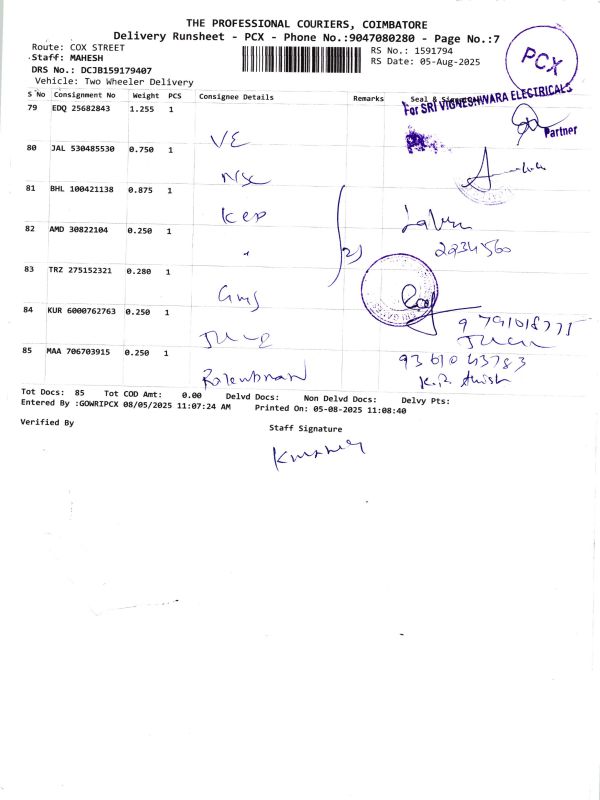 THE PROFESSIONAL COURIERS, COIMBATORE
Delivery Runsheet - PCX - Phone No.:9047080280 - Page No.:7
Route: COX STREET
RS No.: 1591794
Staff: MAHESH
RS Date: 05-Aug-2025
DRS No.: DCJB159179407
Vehicle: Two Wheeler Delivery
PCX
S No Consignment No Weight PCS Consignee Details Remarks Seal &
For SRI VIGNESHWARA ELECTRICALS
Partner
79 EDQ 25682843 1.255 1
VE
80 JAL 530485530 0.750 1
81 BHL 100421138 0.875 1
82 AMD 30822104 0.250 1
2234560
83 TRZ 275152321 0.280 1
GMS
84 KUR 6000762763 0.250 1
85 MAA 706703915 0.250 1
93610 43783
Tot Docs: 85 Tot COD Amt: 0.00 Delvd Docs: Non Delvd Docs: Delvy Pts:
Entered By :GOWRIPCX 08/05/2025 11:07:24 AM Printed On: 05-08-2025 11:08:40
Verified By
Staff Signature